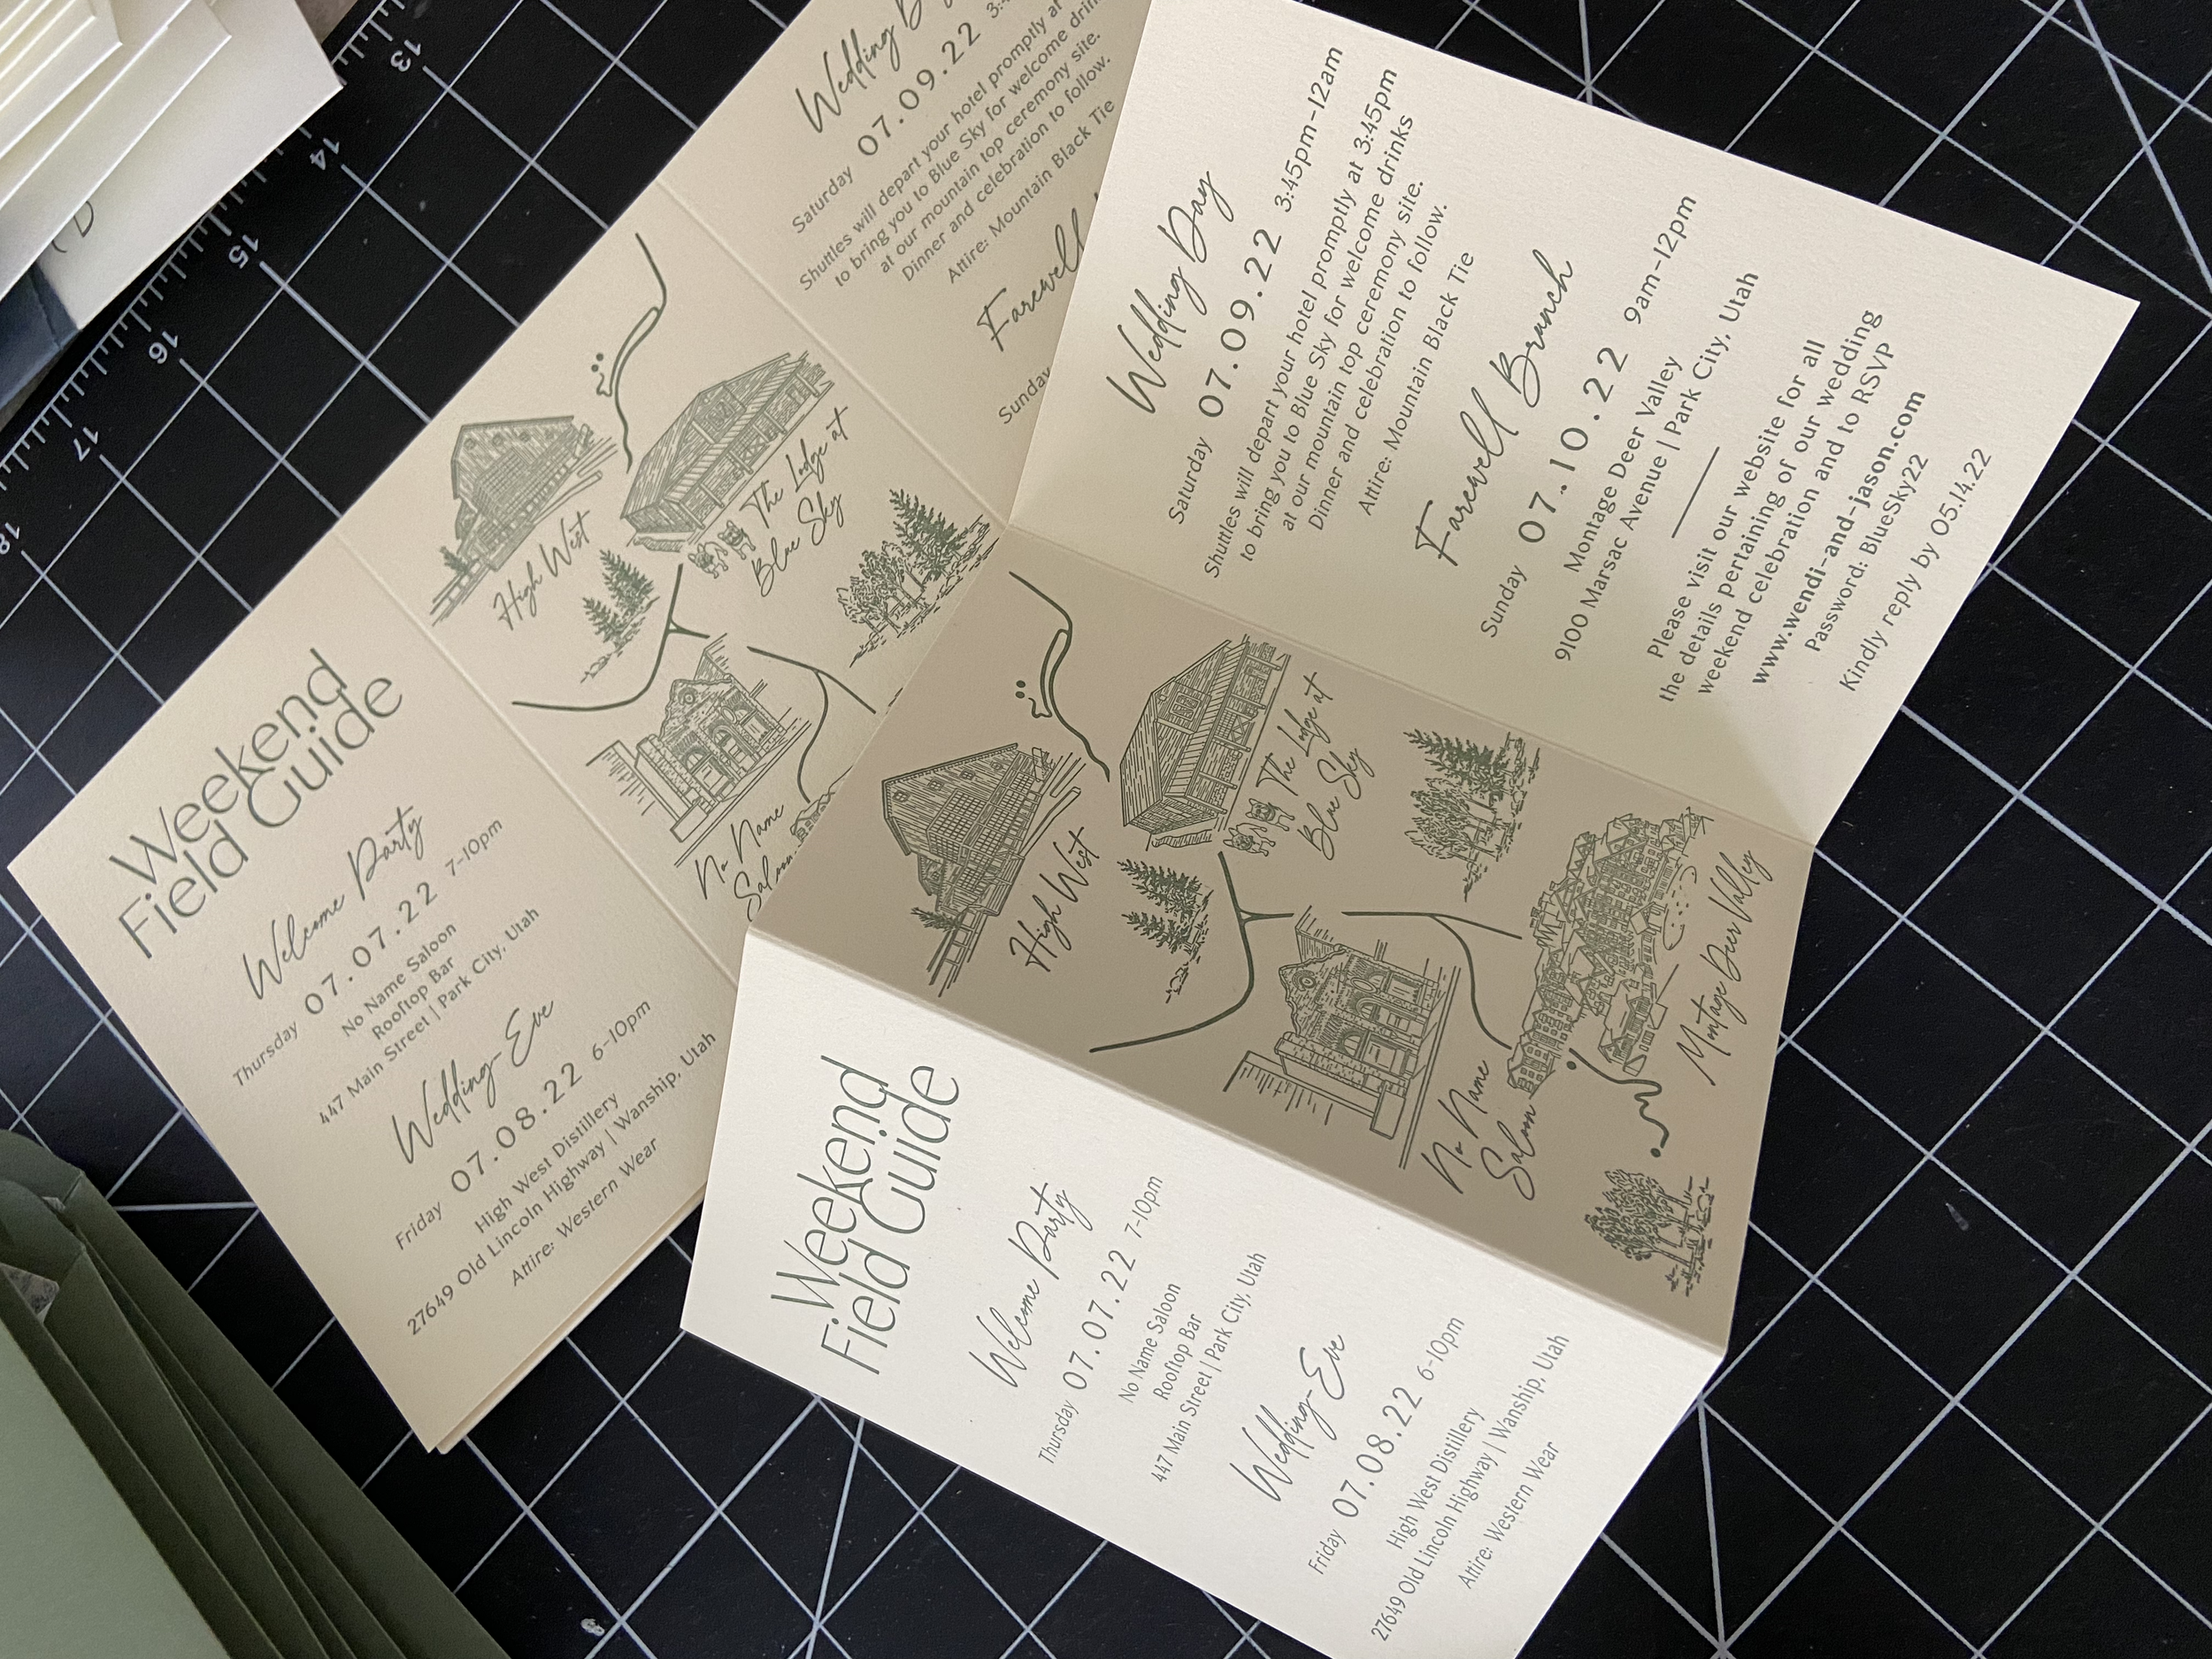 Weekend
Field Guide
Welcome Party
Thursday 07.07.22 7-10pm
No Name Saloon
Rooftop Bar
447 Main Street | Park City, Utah
Wedding-Eve
Friday 07.08.22 6-10pm
High West Distillery
27649 Old Lincoln Highway | Wanship, Utah
Attire: Western Wear
High West
The Lodge at
Blue Sky
No Name
Saloon
Montage Deer Valley
Wedding Day
Saturday 07.09.22 3:45pm-12am
Shuttles will depart your hotel promptly at 3:45pm
to bring you to Blue Sky for welcome drinks
at our mountain top ceremony site.
Dinner and celebration to follow.
Attire: Mountain Black Tie
Farewell Brunch
Sunday 07.10.22 9am-12pm
Montage Deer Valley
9100 Marsac Avenue | Park City, Utah
Please visit our website for all
the details pertaining of our wedding
weekend celebration and to RSVP
www.wendi-and-jason.com
Password: BlueSky22
Kindly reply by 05.14.22
Weekend
Field Guide
Welcome Party
Thursday 07.07.22 7-10pm
No Name Saloon
Rooftop Bar
447 Main Street | Park City, Utah
Wedding-Eve
Friday 07.08.22 6-10pm
High West Distillery
27649 Old Lincoln Highway | Wanship, Utah
Attire: Western Wear
High West
The Lodge at
Blue Sky
No Name
Saloon
Wedding
Saturday 07.09.22
Shuttles will depart your hotel promptly
to bring you to Blue Sky for welcome
at our mountain top ceremony site.
Dinner and celebration to follow.
Attire: Mountain Black Tie
Farewell
Sunday
13
14
15
16
17
18